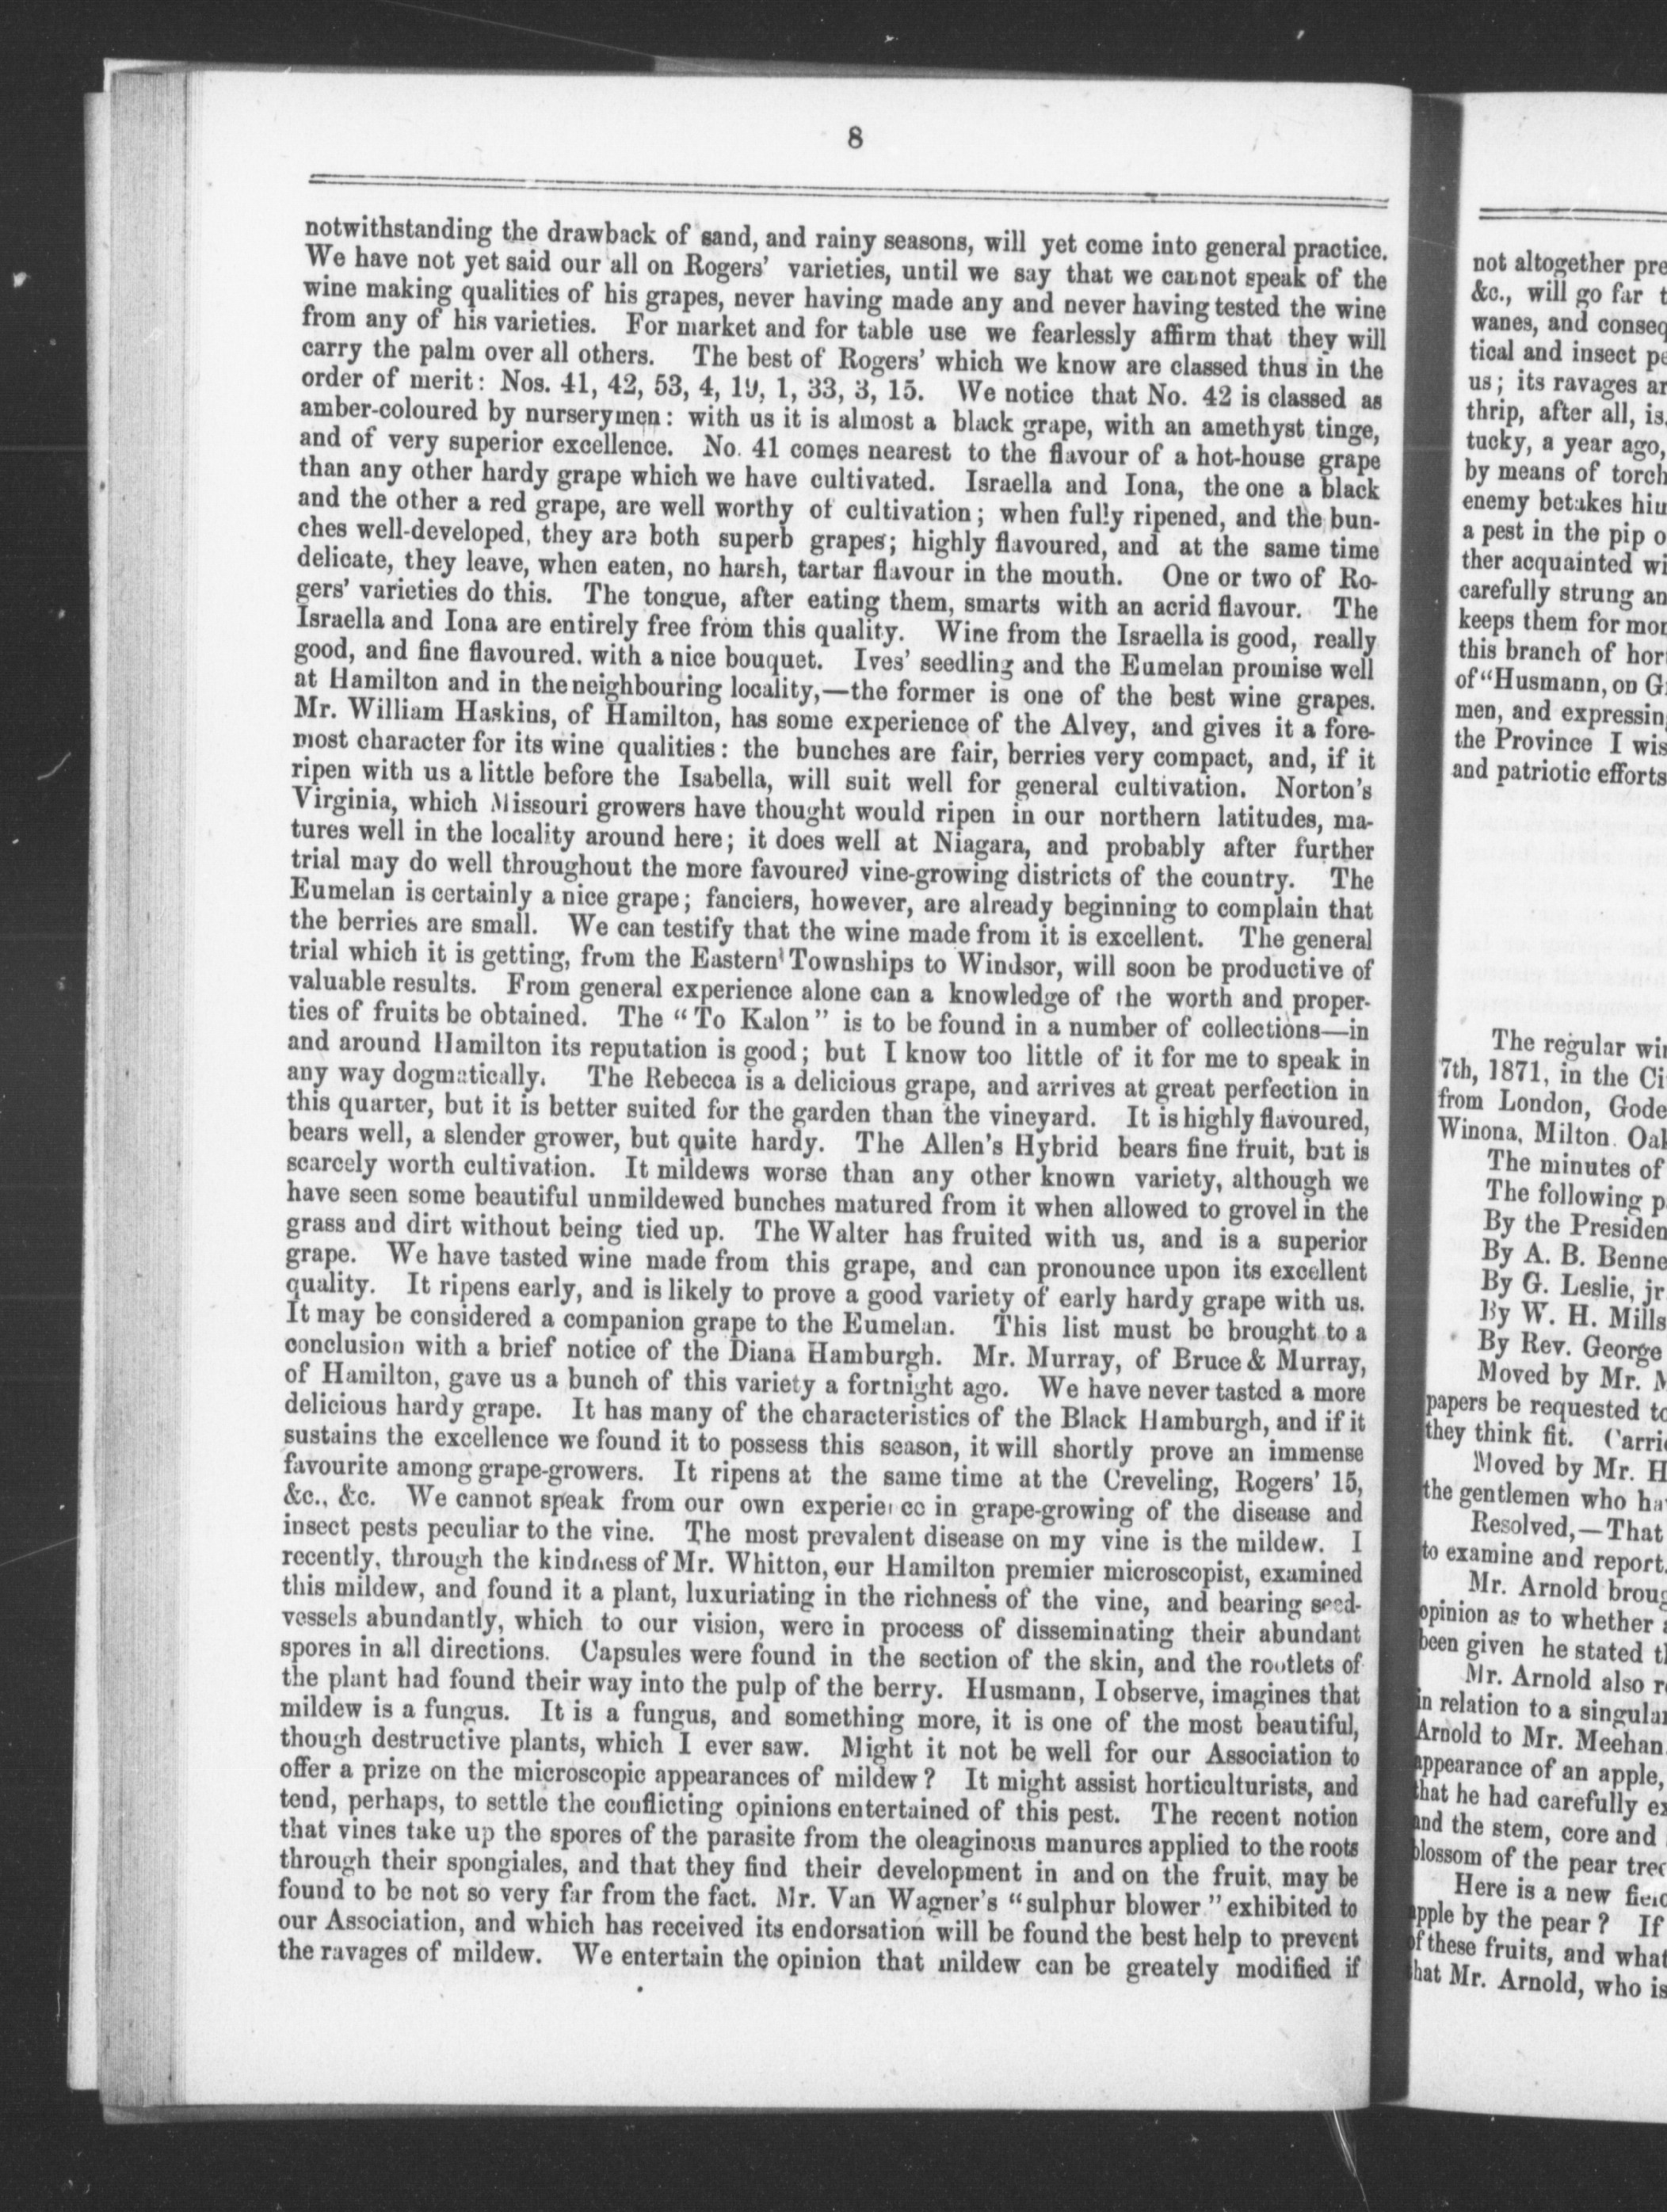 8
notwithstanding the drawback of sand, and rainy seasons, will yet come into general practice.
We have not yet said our all on Rogers' varieties, until we say that we cannot speak of the
wine making qualities of his grapes, never having made any and never having tested the wine
from any of his varieties. For market and for table use we fearlessly affirm that they will
carry the palm over all others. The best of Rogers' which we know are classed thus in the
order of merit: Nos. 41, 42, 53, 4, 19, 1, 33, 3, 15. We notice that No. 42 is classed as
amber-coloured by nurserymen: with us it is almost a black grape, with an amethyst tinge,
and of very superior excellence. No. 41 comes nearest to the flavour of a hot-house grape
than any other hardy grape which we have cultivated. Israella and Iona, the one a black
and the other a red grape, are well worthy of cultivation; when fully ripened, and the bun-
ches well-developed, they are both superb grapes; highly flavoured, and at the same time
delicate, they leave, when eaten, no harsh, tartar flavour in the mouth. One or two of Ro-
gers' varieties do this. The tongue, after eating them, smarts with an acrid flavour. The
Israella and Iona are entirely free from this quality. Wine from the Israella is good, really
good, and fine flavoured. with a nice bouquet. Ives' seedling and the Eumelan promise well
at Hamilton and in the neighbouring locality,—the former is one of the best wine grapes.
Mr. William Haskins, of Hamilton, has some experience of the Alvey, and gives it a fore-
most character for its wine qualities: the bunches are fair, berries very compact, and, if it
ripen with us a little before the Isabella, will suit well for general cultivation. Norton's
Virginia, which Missouri growers have thought would ripen in our northern latitudes, ma-
tures well in the locality around here; it does well at Niagara, and probably after further
trial may do well throughout the more favoured vine-growing districts of the country. The
Eumelan is certainly a nice grape; fanciers, however, are already beginning to complain that
the berries are small. We can testify that the wine made from it is excellent. The general
trial which it is getting, from the Eastern Townships to Windsor, will soon be productive of
valuable results. From general experience alone can a knowledge of the worth and proper-
ties of fruits be obtained. The "To Kalon" is to be found in a number of collections—in
and around Hamilton its reputation is good; but I know too little of it for me to speak in
any way dogmatically. The Rebecca is a delicious grape, and arrives at great perfection in
this quarter, but it is better suited for the garden than the vineyard. It is highly flavoured,
bears well, a slender grower, but quite hardy. The Allen's Hybrid bears fine fruit, but is
scarcely worth cultivation. It mildews worse than any other known variety, although we
have seen some beautiful unmildewed bunches matured from it when allowed to grovel in the
grass and dirt without being tied up. The Walter has fruited with us, and is a superior
grape. We have tasted wine made from this grape, and can pronounce upon its excellent
quality. It ripens early, and is likely to prove a good variety of early hardy grape with us.
It may be considered a companion grape to the Eumelan. This list must be brought to a
conclusion with a brief notice of the Diana Hamburgh. Mr. Murray, of Bruce & Murray,
of Hamilton, gave us a bunch of this variety a fortnight ago. We have never tasted a more
delicious hardy grape. It has many of the characteristics of the Black Hamburgh, and if it
sustains the excellence we found it to possess this season, it will shortly prove an immense
favourite among grape-growers. It ripens at the same time at the Creveling, Rogers' 15,
&c., &c. We cannot speak from our own experience in grape-growing of the disease and
insect pests peculiar to the vine. The most prevalent disease on my vine is the mildew. I
recently, through the kindness of Mr. Whitton, our Hamilton premier microscopist, examined
this mildew, and found it a plant, luxuriating in the richness of the vine, and bearing seed-
vessels abundantly, which to our vision, were in process of disseminating their abundant
spores in all directions. Capsules were found in the section of the skin, and the rootlets of
the plant had found their way into the pulp of the berry. Husmann, I observe, imagines that
mildew is a fungus. It is a fungus, and something more, it is one of the most beautiful,
though destructive plants, which I ever saw. Might it not be well for our Association to
offer a prize on the microscopic appearances of mildew? It might assist horticulturists, and
tend, perhaps, to settle the conflicting opinions entertained of this pest. The recent notion
that vines take up the spores of the parasite from the oleaginous manures applied to the roots
through their spongiales, and that they find their development in and on the fruit, may be
found to be not so very far from the fact. Mr. Van Wagner's "sulphur blower" exhibited to
our Association, and which has received its endorsation will be found the best help to prevent
the ravages of mildew. We entertain the opinion that mildew can be greately modified if
not altogether pre
&c., will go far t
wanes, and conseq
tical and insect pe
us; its ravages ar
thrip, after all, is
tucky, a year ago,
by means of torch
enemy betakes him
a pest in the pip o
ther acquainted wi
carefully strung an
keeps them for mor
this branch of hor
of "Husmann, on G
men, and expressin
the Province I wis
and patriotic efforts
The regular win
7th, 1871, in the Ci
from London, Gode
Winona, Milton. Oak
The minutes of
The following p
By the Presiden
By A. B. Benne
By G. Leslie, jr
By W. H. Mills
By Rev. George
Moved by Mr. M
papers be requested to
they think fit. Carrie
Moved by Mr. H
the gentlemen who ha
Resolved,—That
to examine and report.
Mr. Arnold broug
opinion as to whether
been given he stated t
Mr. Arnold also r
in relation to a singular
Arnold to Mr. Meehan
appearance of an apple,
that he had carefully ex
and the stem, core and
blossom of the pear tree
Here is a new field
apple by the pear? If
of these fruits, and what
that Mr. Arnold, who is